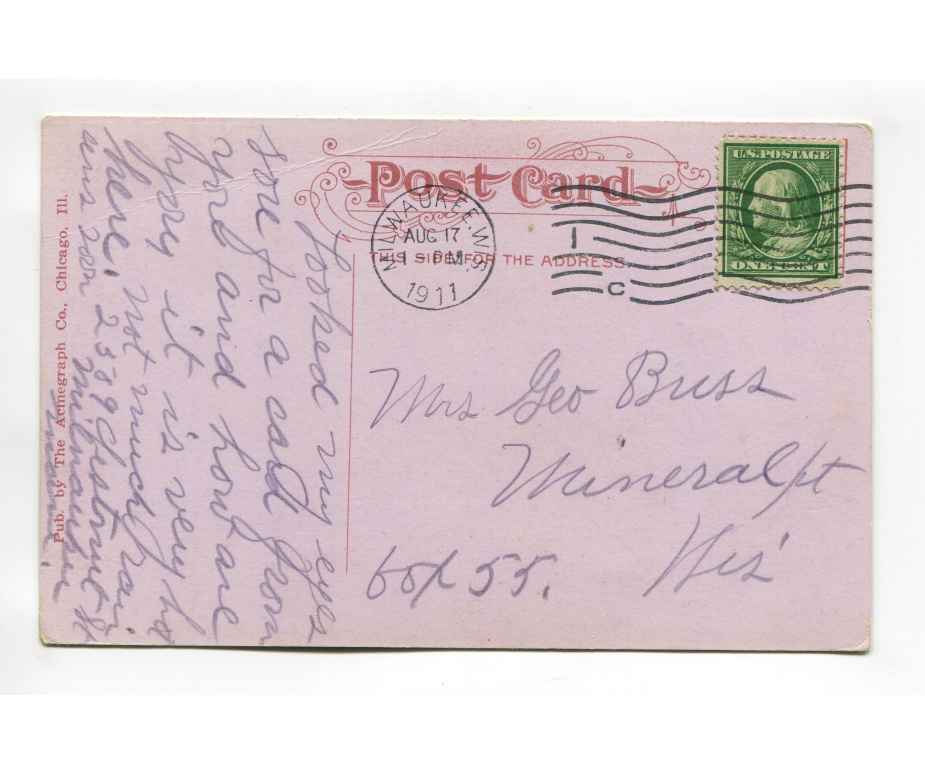 Post Card
THIS SIDE FOR THE ADDRESS
MILWAUKEE, WIS
AUG 17
1 - PM
1911
1
C
U.S. POSTAGE
ONE CENT
Mrs Geo Buss
Mineral pt
Wis
box 55.
Looked my eyes
sore for a card from
you and how are
you it is very ho
here. not much rain
ans soon 239
Milwaukee
Pub. by The Acmegraph Co., Chicago, Ill.